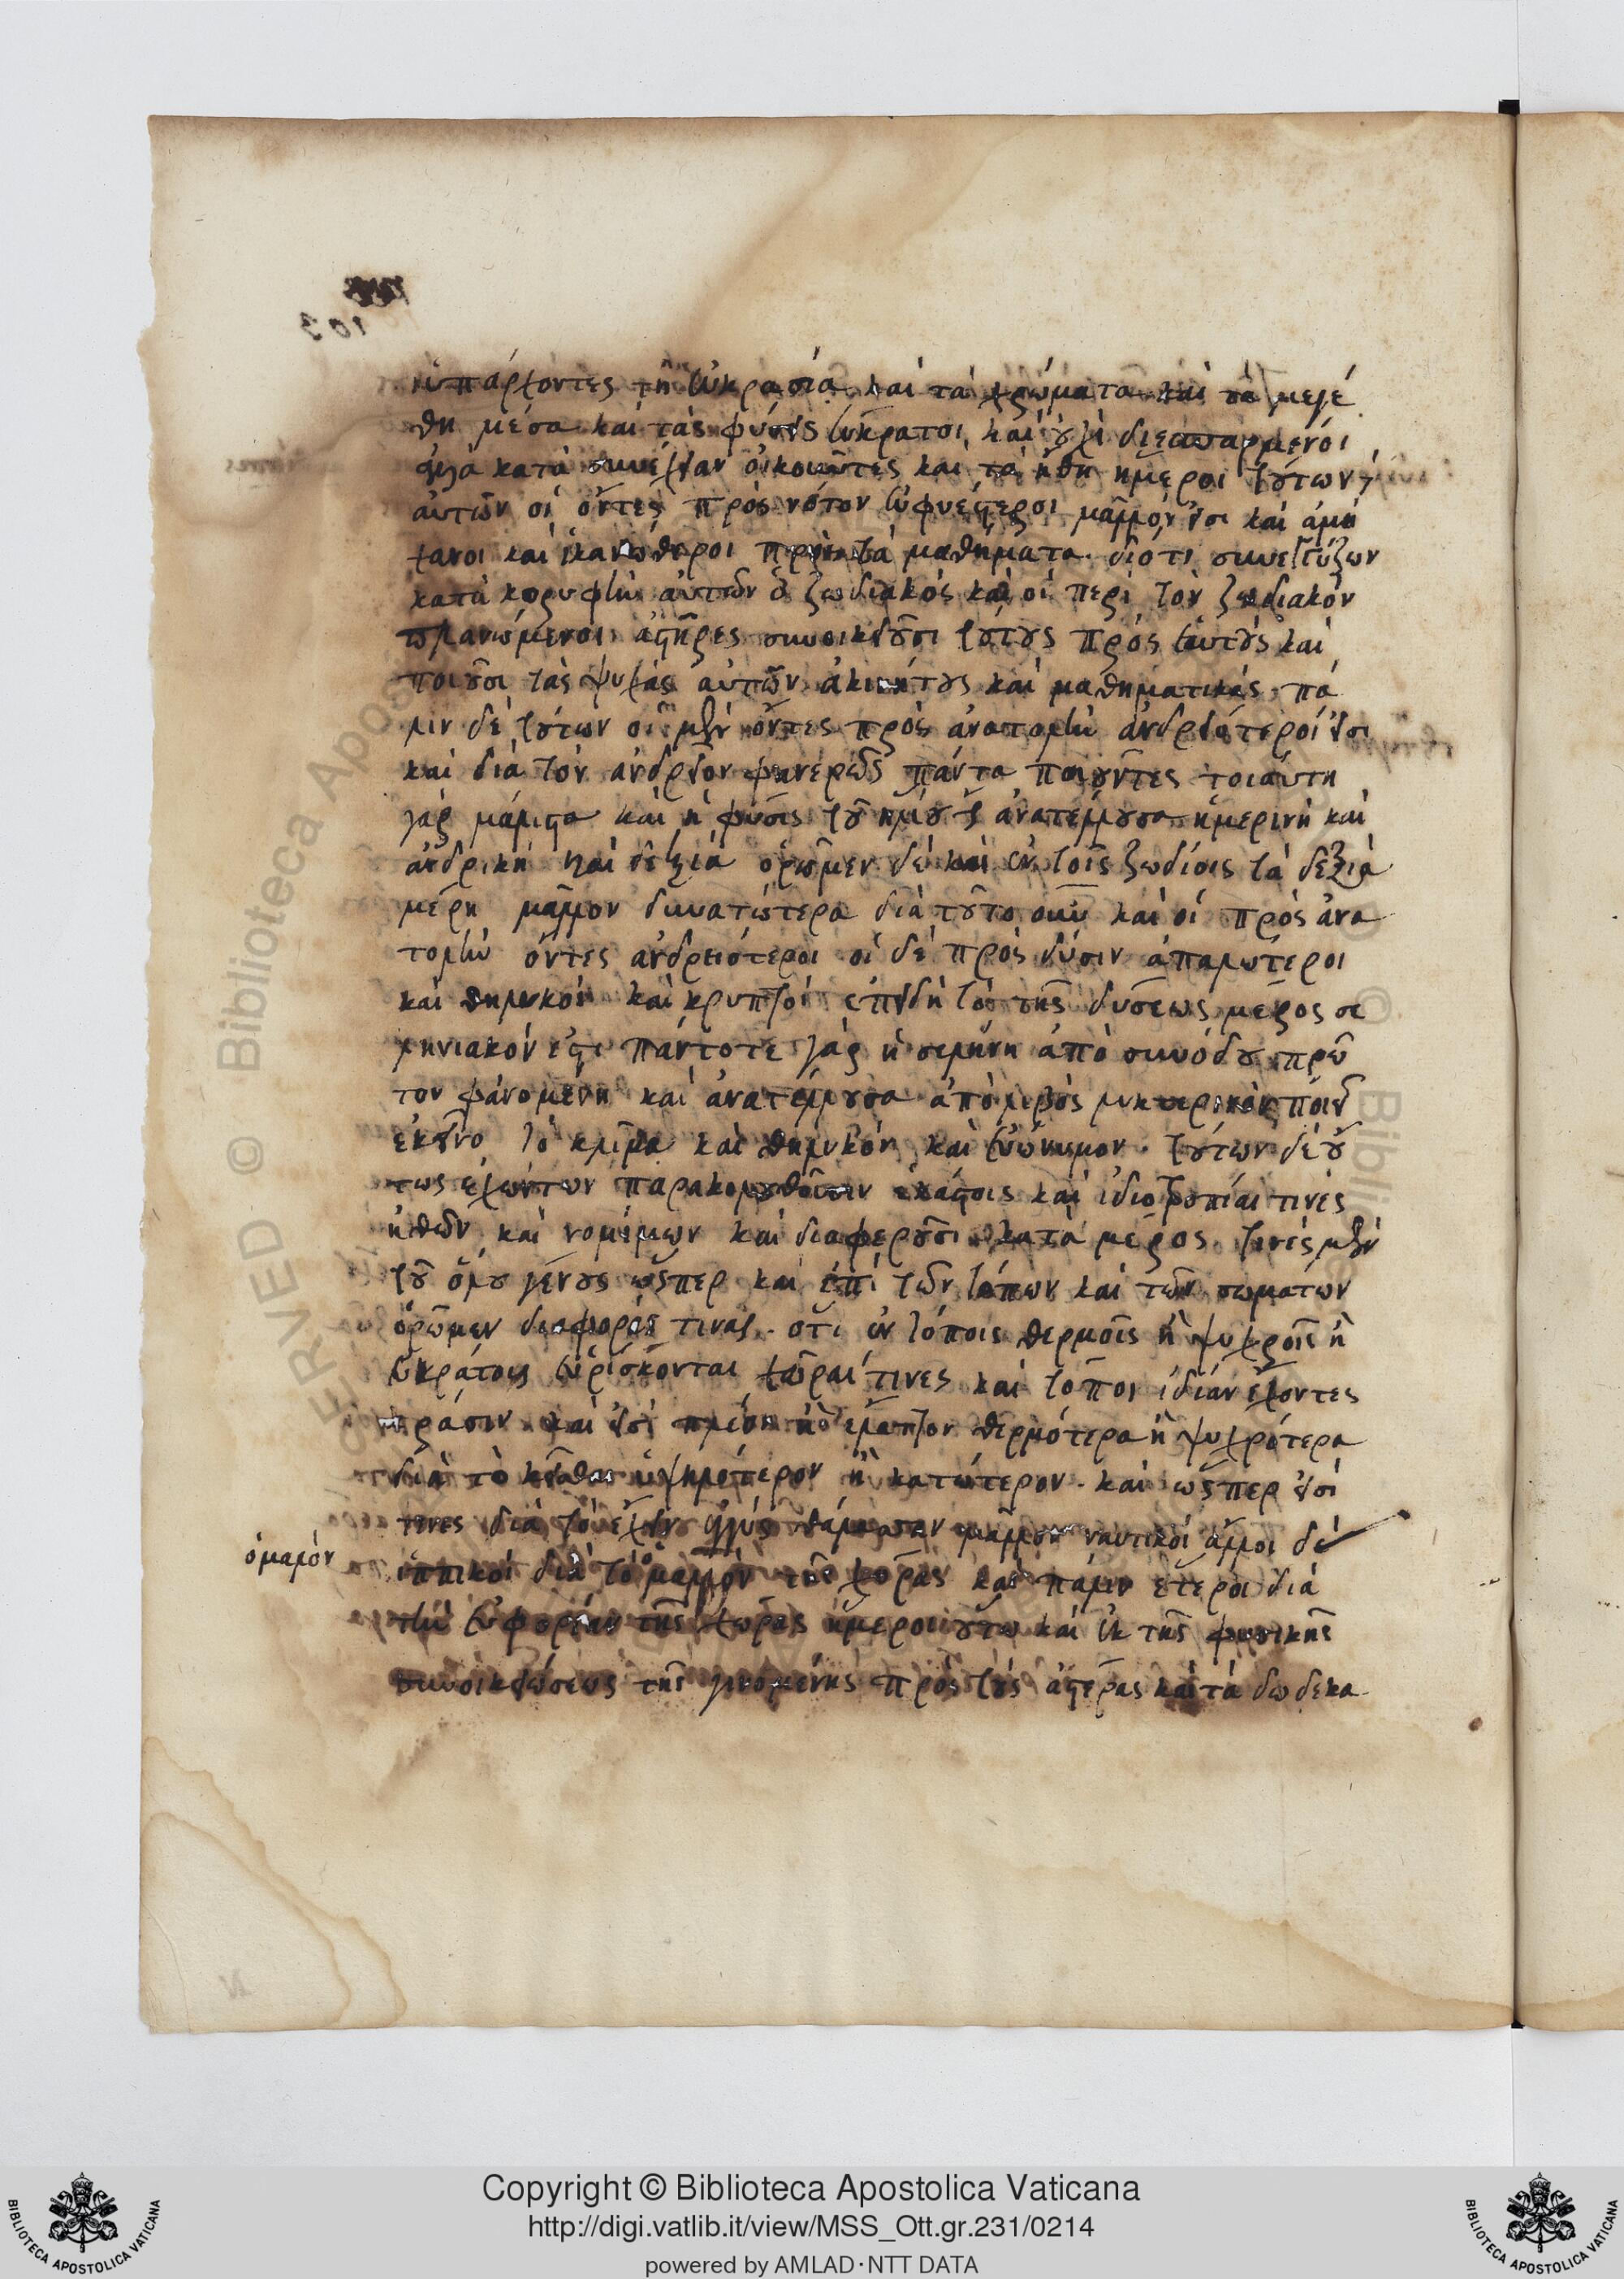 ὑπάρχοντες τῇ εὐκρασίᾳ καὶ τὰ χρώματα καὶ τὰ μεγέ
θη μέσα καὶ τὰς φύσεις εὔκρατοι καὶ οὐχὶ διεσπαρμένοι
ἀλλὰ κατὰ συνέχειαν οἰκοῦντες καὶ τὰ ἤθη ἥμεροι τούτων
αὐτῶν οἱ ὄντες πρὸς νότον εὐφυέστεροι μᾶλλόν εἰσι καὶ ἀμή
χανοι καὶ ἱκανώτεροι πρὸς τὰ μαθήματα. διότι συνεγγίζων
κατὰ κορυφὴν αὐτῶν ὁ ζωδιακός καὶ οἱ περὶ τὸν ζωδιακὸν
πλανώμενοι ἀστῆρες συνοικειοῦσι τούτους πρὸς ἑαυτοὺς καὶ
ποιοῦσι τὰς ψυχὰς αὐτῶν ἀκινήτους καὶ μαθηματικάς πά
λιν δὲ τούτων οἱ μὲν ὄντες πρὸς ἀνατολὴν ἀνδρειότεροί εἰσι
καὶ διὰ τὸν ἀνδρεῖον φανερῶς πάντα ποιοῦντες τοιαύτη
γὰρ μάλιστα καὶ ἡ φύσις τοῦ ἡλίου ἀνατέλλουσα ἡμερινὴ καὶ
ἀνδρική καὶ δεξιά ὁρῶμεν δὲ καὶ ἐν τοῖς ζωδίοις τὰ δεξιὰ
μέρη μᾶλλον δυνατώτερα διὰ τοῦτο οὖν καὶ οἱ πρὸς ἀνα
τολὴν ὄντες ἀνδρειότεροι οἱ δὲ πρὸς δύσιν ἁπαλώτεροι
καὶ θηλυκοὶ καὶ κρυπτοί ἐπειδὴ τὸ τῆς δύσεως μέρος σε
ληνιακόν ἐστι πάντοτε γὰρ ἡ σελήνη ἀπὸ συνόδου πρῶ
τον φαινομένη καὶ ἀνατέλλουσα ἀπὸ λιβὸς νυκτερινὸν ποιεῖ
ἐκεῖνο τὸ κλίμα καὶ θηλυκὸν καὶ εὐώνυμον. τούτων δὲ οὕ
τως ἐχόντων παρακολουθοῦσιν ἑκάστοις καὶ ἰδιοτροπίαι τινὲς
ἠθῶν καὶ νομίμων καὶ διαφέρουσι κατὰ μέρος τινὲς μὲν
τοῦ ὅλου γένους ὥσπερ καὶ ἐπὶ τῶν τόπων καὶ τῶν σωμάτων
ὁρῶμεν διαφοράς τινας. ὅτι ἐν τόποις θερμοῖς ἢ ψυχροῖς ἢ
εὐκράτοις εὑρίσκονται χῶραί τινες καὶ τόποι ἰδίαν ἔχοντες
κρᾶσιν καὶ εἰσὶ πλέον ἢ ἔλαττον θερμότερα ἢ ψυχρότερα
διὰ τὸ κεῖσθαι ὑψηλότερον ἢ κατώτερον. καὶ ὥσπερ εἰσὶ
τινες διὰ τὸ ἔχειν ἐγγὺς θάλασσαν μᾶλλον ναυτικοί ἄλλοι δὲ
ἱππικοὶ διὰ τὸ μᾶλλον τῆς χώρας καὶ πάλιν ἕτεροι διὰ
ὁμαλὸν
τὴν εὐφορίαν τῆς χώρας ἥμεροι οὕτω καὶ ἐκ τῆς φυσικῆς
συνοικειώσεως τῆς γινομένης πρὸς τοὺς ἀστέρας καὶ τὰ δώδεκα
103
Copyright © Biblioteca Apostolica Vaticana
http://digi.vatlib.it/view/MSS_Ott.gr.231/0214
powered by AMLAD·NTT DATA
BIBLIOTECA APOSTOLICA VATICANA
BIBLIOTECA APOSTOLICA VATICANA